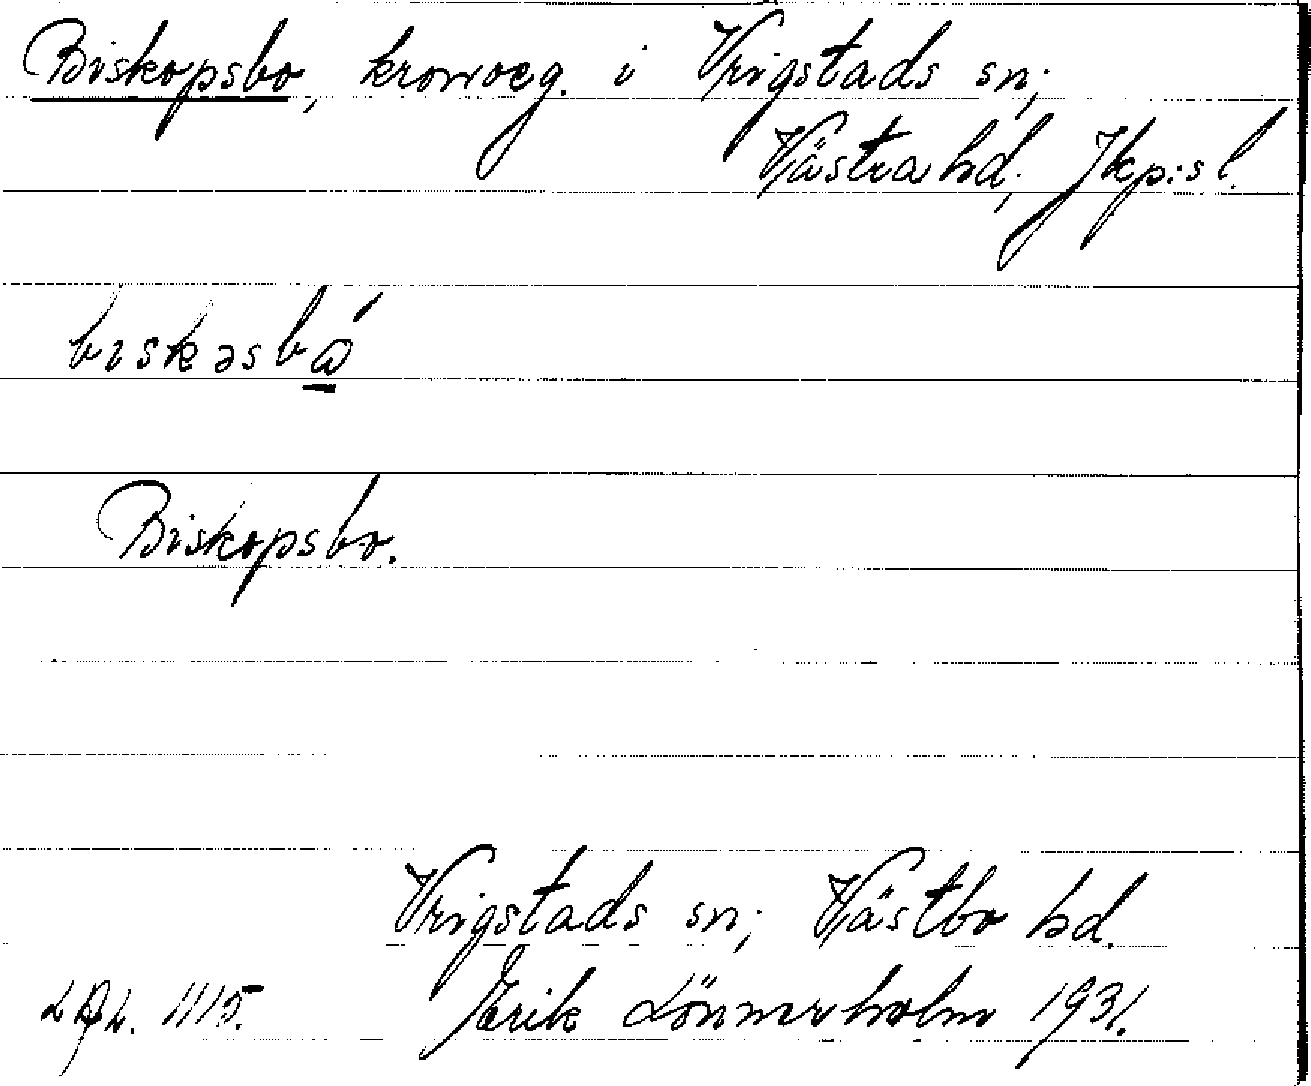 Biskopsbo, kronoeg. i Vrigstads sn;
Västra hd; Jkp:s l.
biskəsbó
Biskopsbo.
Vrigstads sn; Västbo hd.
1115. Erik Lönnerholm 1931.